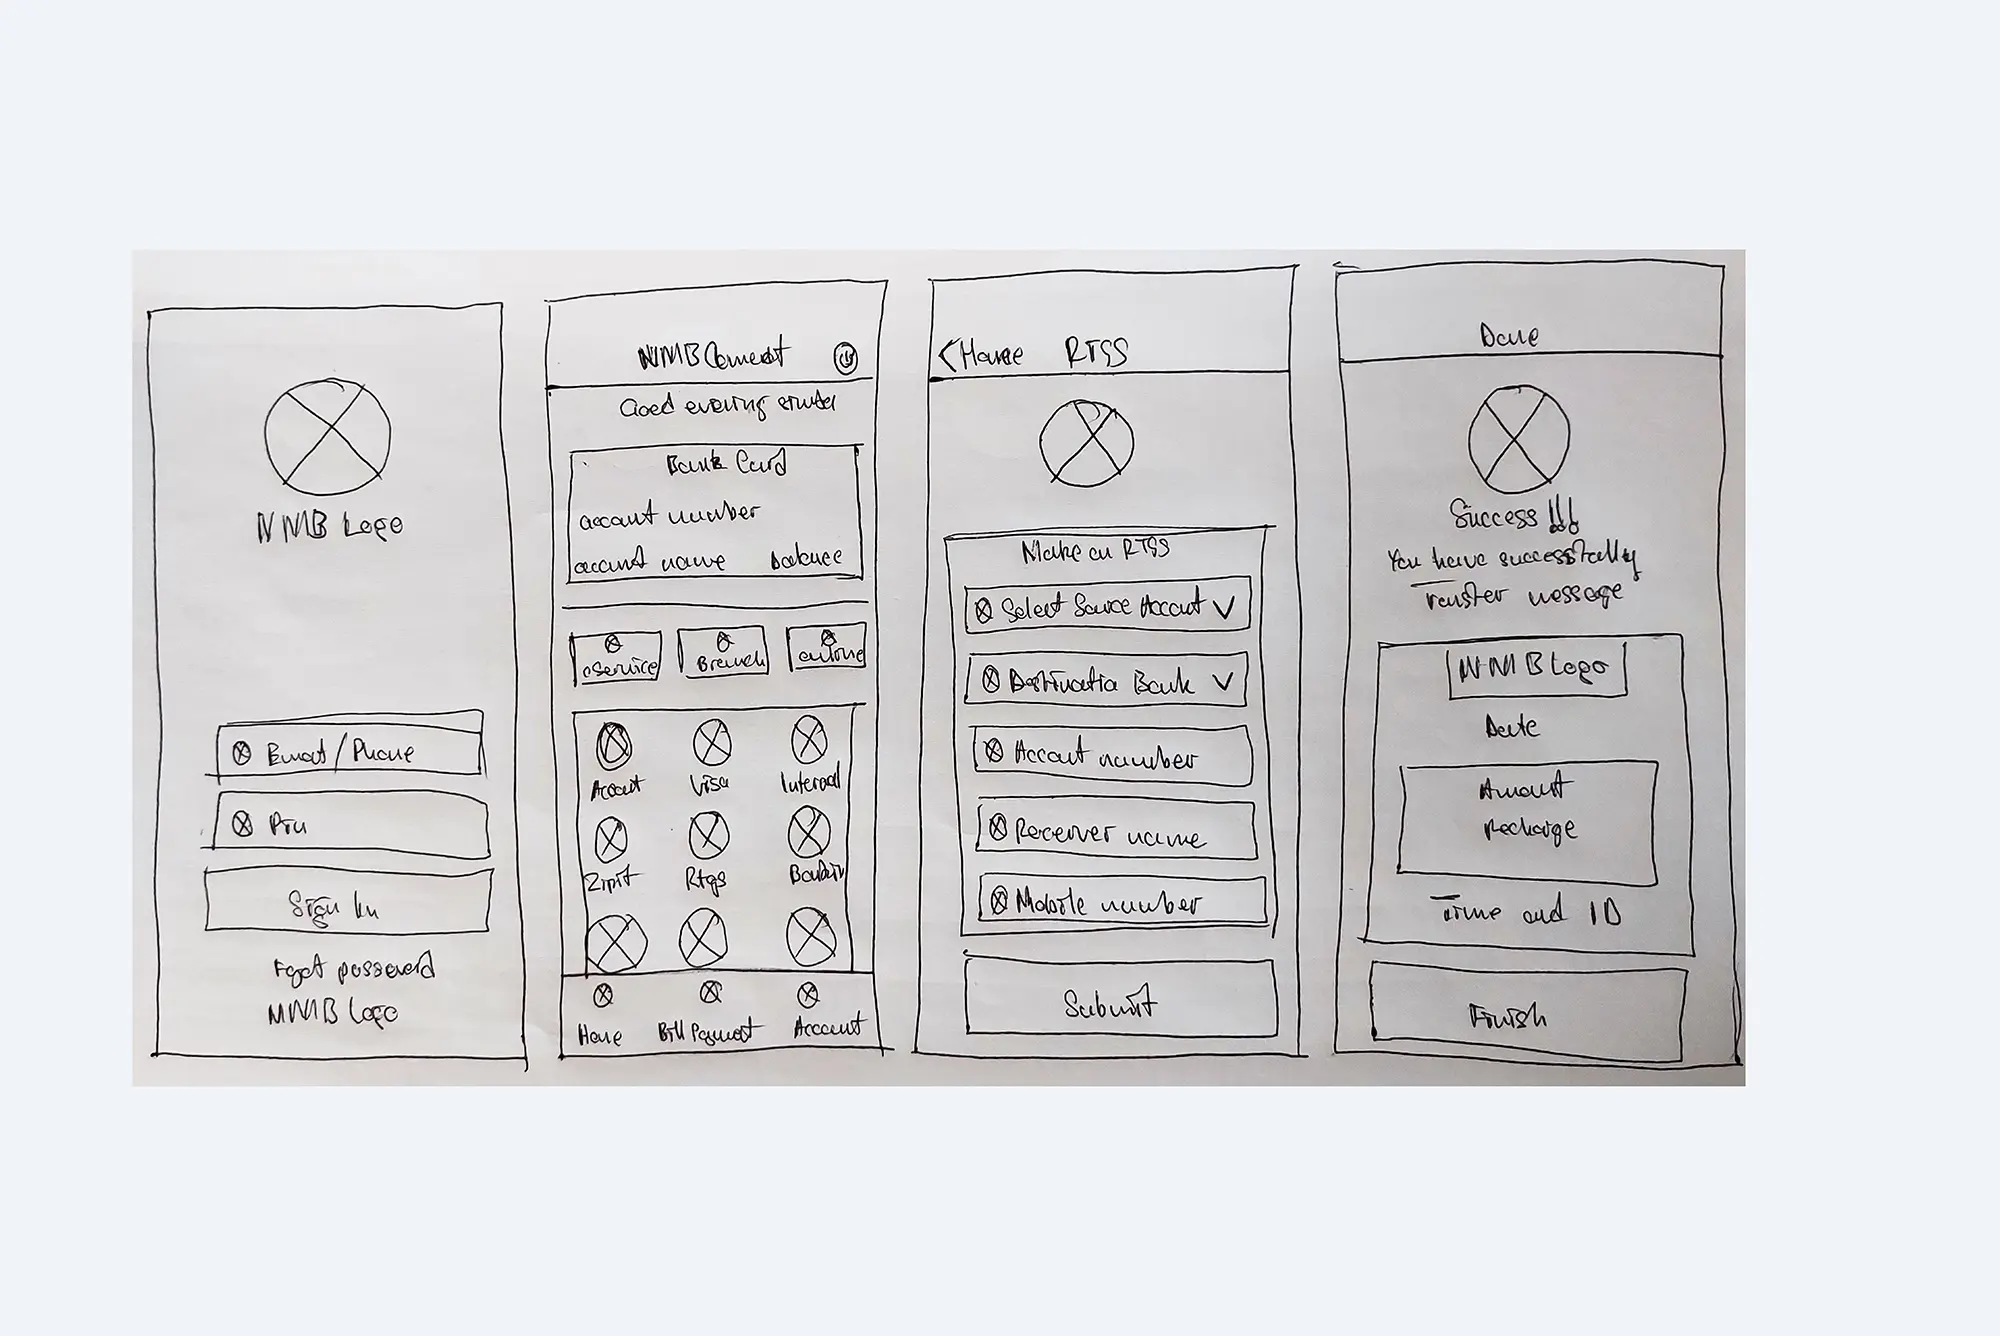 NMB Logo
Email/Phone
Pin
Sign In
Forgot password
NMB Logo
NMBConnect
Good evening
Bank Card
account number
account name balance
eService
Branch
Account
Visa
Internal
Zipit
Rtgs
Home
Bill Payment
Account
Home RTGS
Make an RTGS
Select Source Account
Destination Bank
Account number
Receiver name
Mobile number
Submit
Done
Success!!!
You have successfully
Transfer message
NMB Logo
Date
Amount
Recharge
Time and ID
Finish